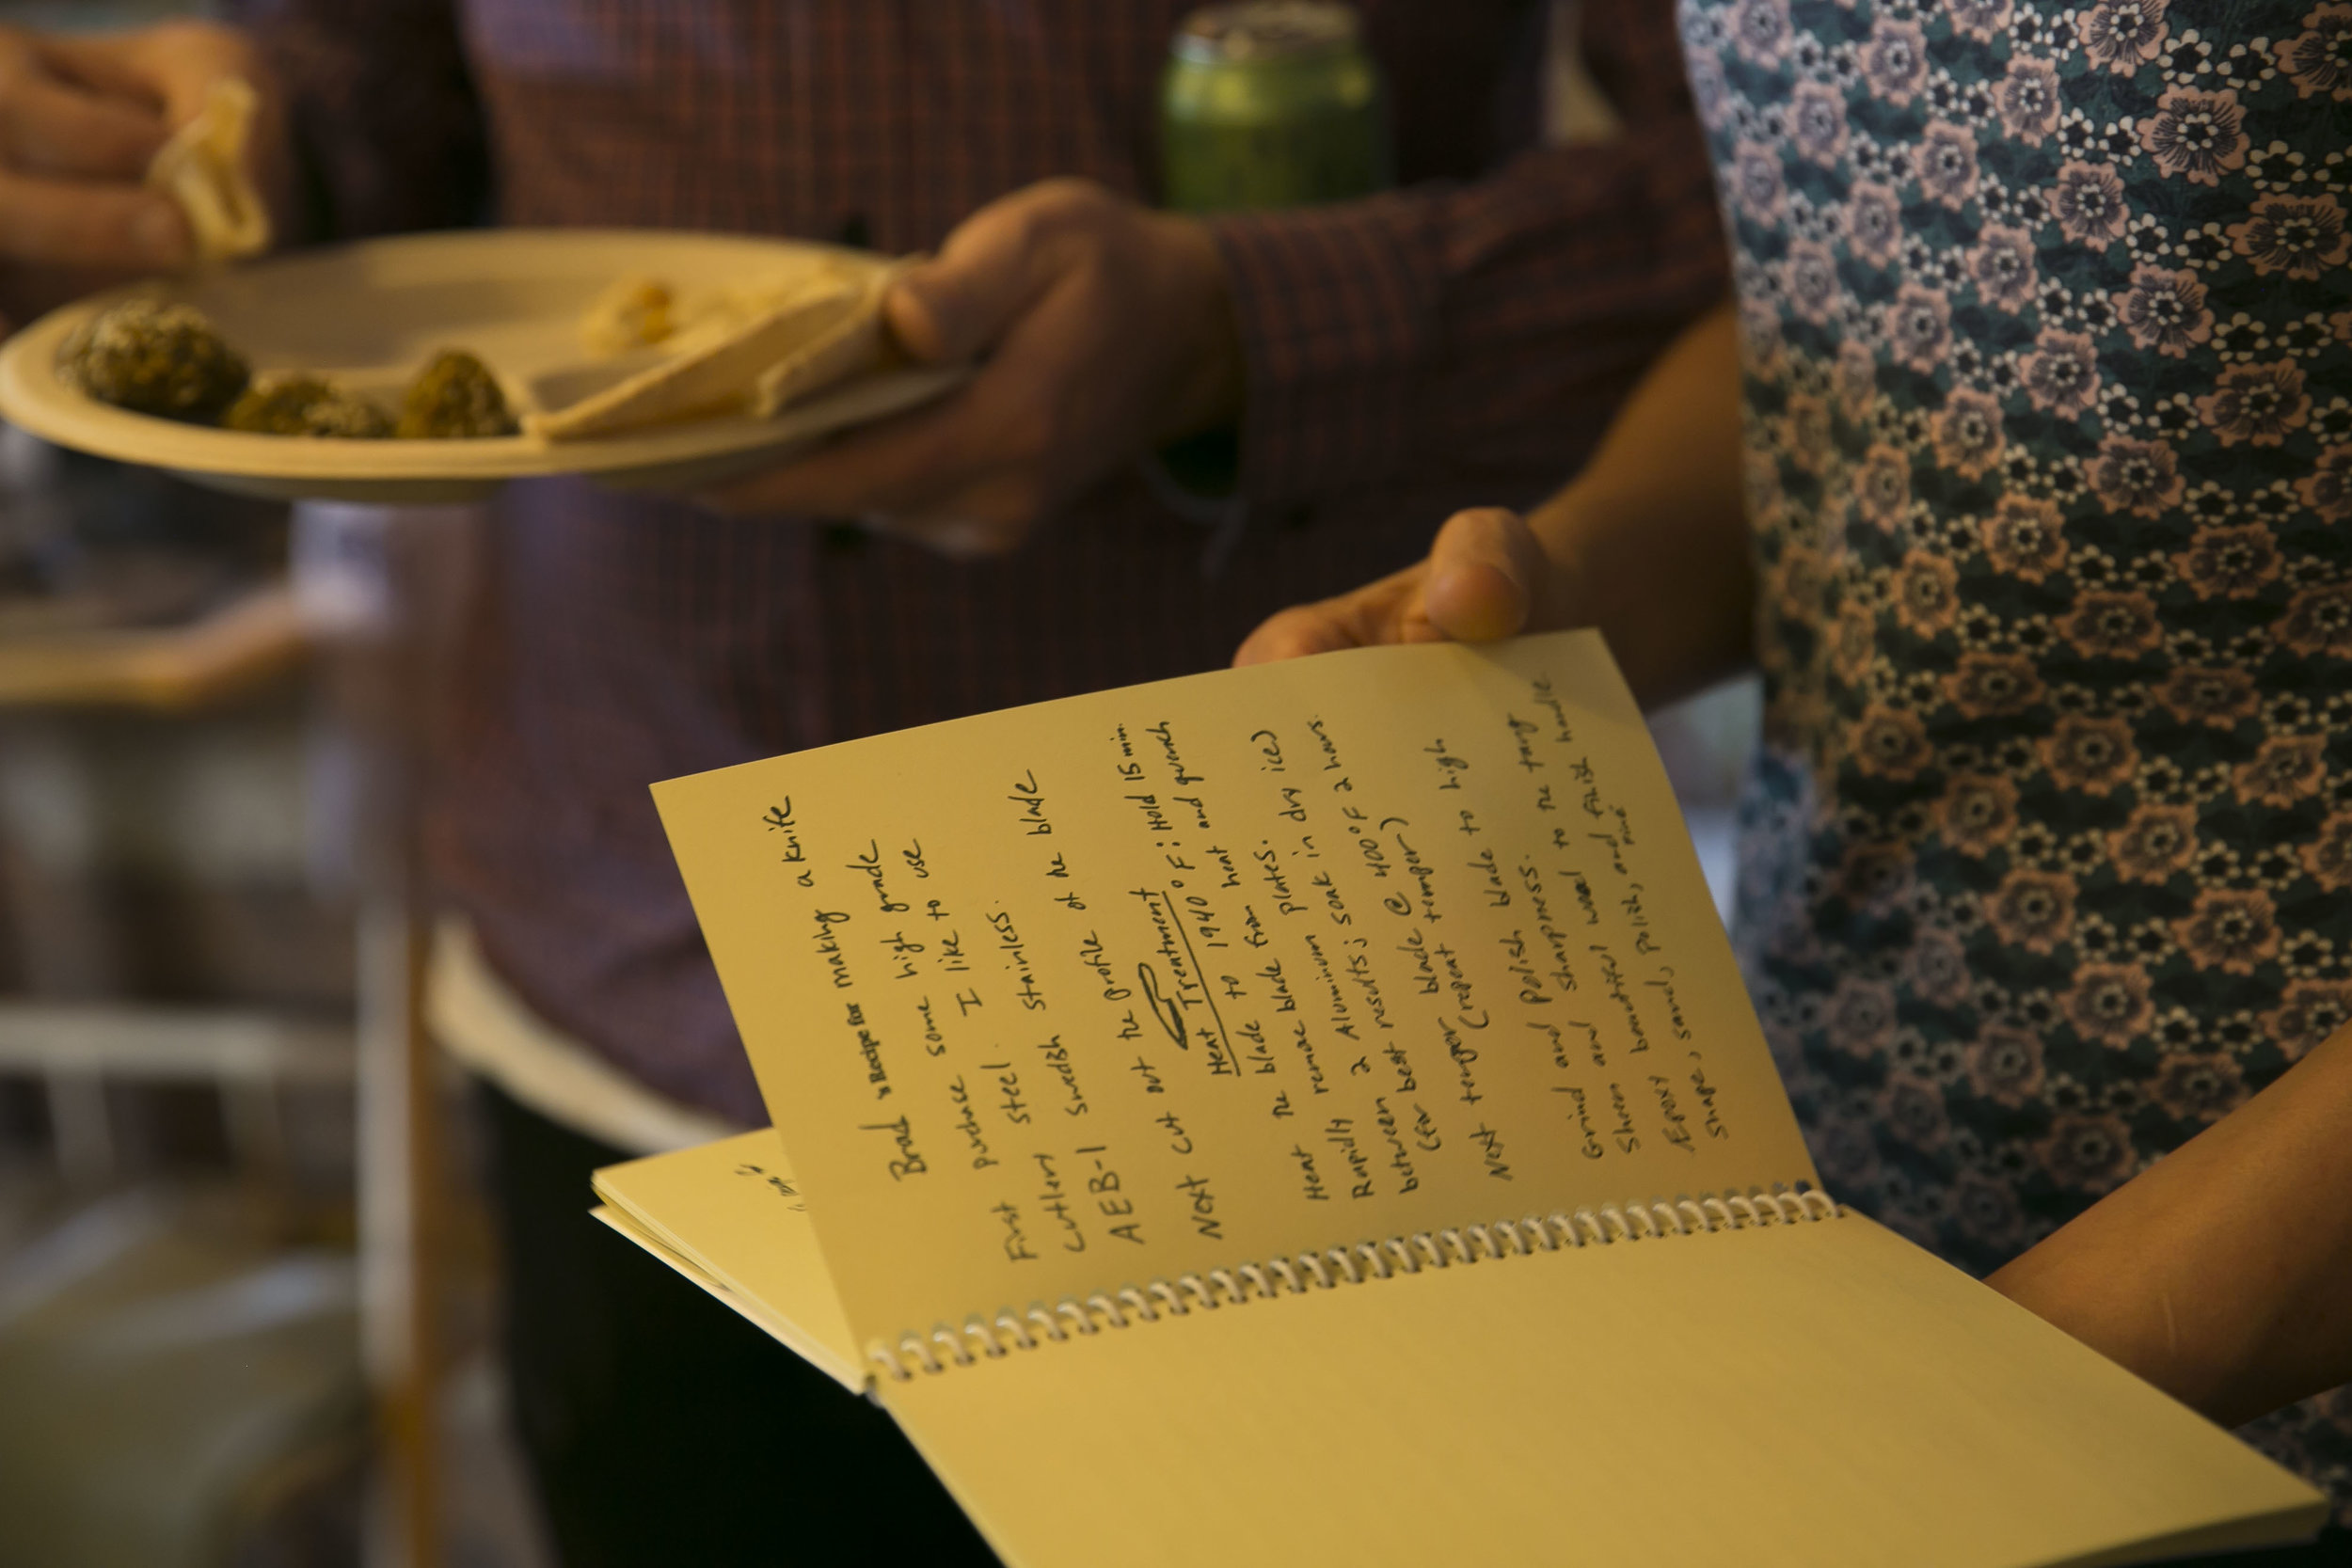 Brad's Recipe for making a knife
First purchase some high grade
cutlery steel. I like to use
AEB-1 swedish stainless.
Next cut out the profile of the blade
Heat Treatment
Heat the blade to 1940°F: Hold 15 min.
remove blade from heat and quench
Rapidly 2 Aluminum plates.
between
(for best results; soak in dry ice)
Next temper blade @ 400°F 2 hours.
(repeat temper)
Grind and polish blade to high
sheen and sharpness.
Epoxy beautiful wood to the tang
shape, sand, polish, and finish handle